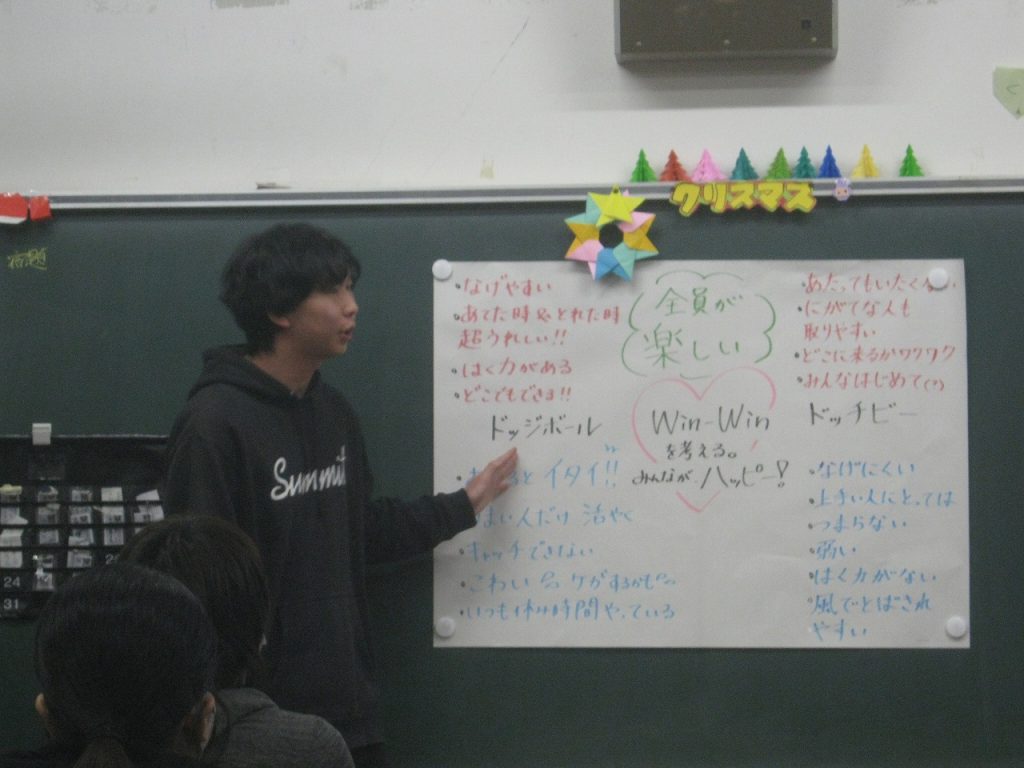 クリスマス
宿題
・なげやすい
・あてた時やとれた時
超うれしい!!
・はく力がある
・どこでもできる!!
ドッジボール
と イタイ!!
い人だけ 活やく
・キャッチできない
・こわい ケガするかも
・いつも休み時間やっている
全員が
楽しい
Win-Win
を考える。
みんなが ハッピー!
・あたってもいたく
・にがてな人も
取りやすい
・どこに来るかワクワク
・みんなはじめて(?)
ドッチビー
・なげにくい
・上手い人にとっては
つまらない
・弱い
・はく力がない
・風でとばされ
やすい
Summit
24
31
く